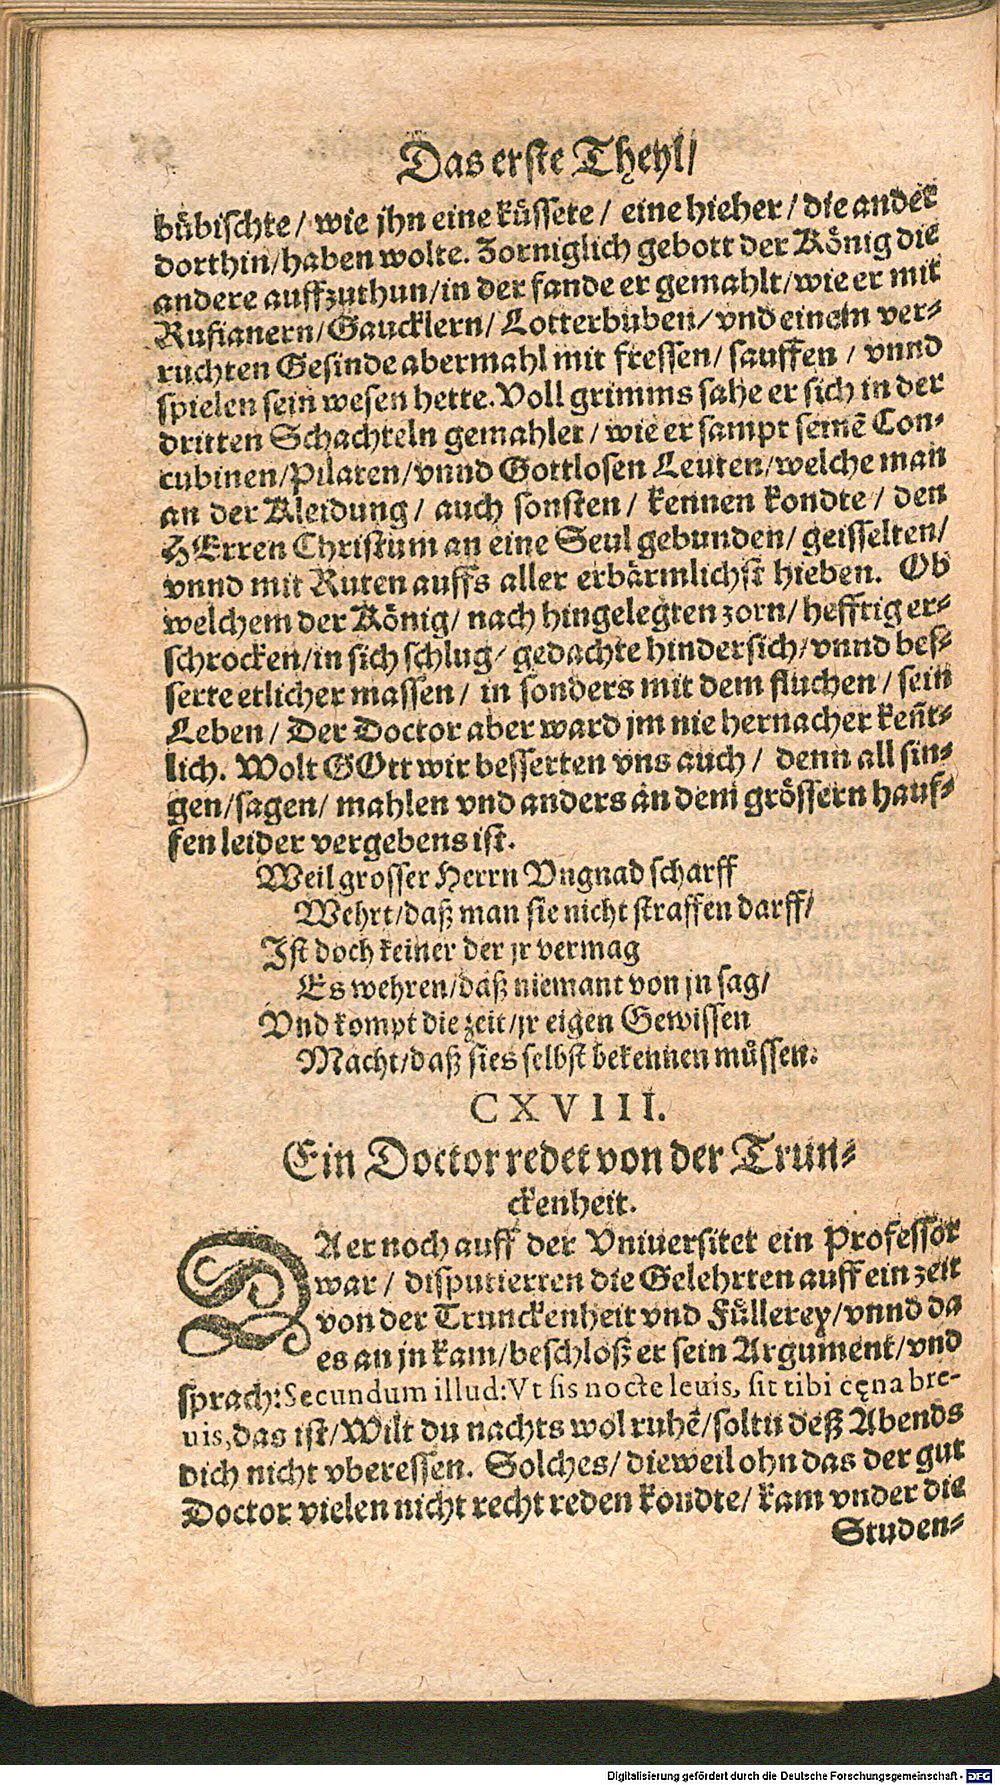 Das erste Theyl/
bůbischte/ wie jhn eine kůssete/ eine hieher/ die ander
dorthin/haben wolte. Zorniglich gebott der König die
andere auffzuthun/in der fande er gemahlt/wie er mit
Rufianern/Gaucklern/ Lotterbuben/vnd einem ver-
ruchten Gesinde abermahl mit fressen/ sauffen / vnnd
spielen sein wesen hette. Voll grimms sahe er sich in der
dritten Schachteln gemahlet / wie er sampt seinē Con-
cubinen/Pilaten/vnnd Gottlosen Leuten/welche man
an der Kleidung/ auch sonsten/ kennen kondte/ den
HErren Christum an eine Seul gebunden/ geisselten/
vnnd mit Ruten auffs aller erbärmlichst hieben. Ob
welchem der König/ nach hingelegten zorn/ hefftig er-
schrocken/in sich schlug/ gedachte hindersich/vnnd bes-
serte etlicher massen/ in sonders mit dem fluchen/ sein
Leben/ Der Doctor aber ward jm nie hernacher keñt-
lich. Wolt GOtt wir besserten vns auch/ denn all sin-
gen/sagen/ mahlen vnd anders an dem grössern hauf-
fen leider vergebens ist.
Weil grosser Herrn Vngnad scharff
Wehrt/daß man sie nicht straffen darff/
Ist doch keiner der jr vermag
Es wehren/daß niemant von jn sag/
Vnd kompt die zeit/jr eigen Gewissen
Macht/daß sies selbst bekennen můssen.
CXVIII.
Ein Doctor redet von der Trun-
ckenheit.
DA er noch auff der Vniuersitet ein Professor
war/ disputierten die Gelehrten auff ein zeit
von der Trunckenheit vnd Fůllerey/vnnd da
es an jn kam/beschloß er sein Argument/vnd
sprach: Secundum illud: Vt sis nocte leuis, sit tibi cęna bre-
uis, das ist/Wilt du nachts wol ruhē/soltu deß Abends
dich nicht vberessen. Solches/ dieweil ohn das der gut
Doctor vielen nicht recht reden kondte/ kam vnder die
Studen-
Digitalisierung gefördert durch die Deutsche Forschungsgemeinschaft - DFG